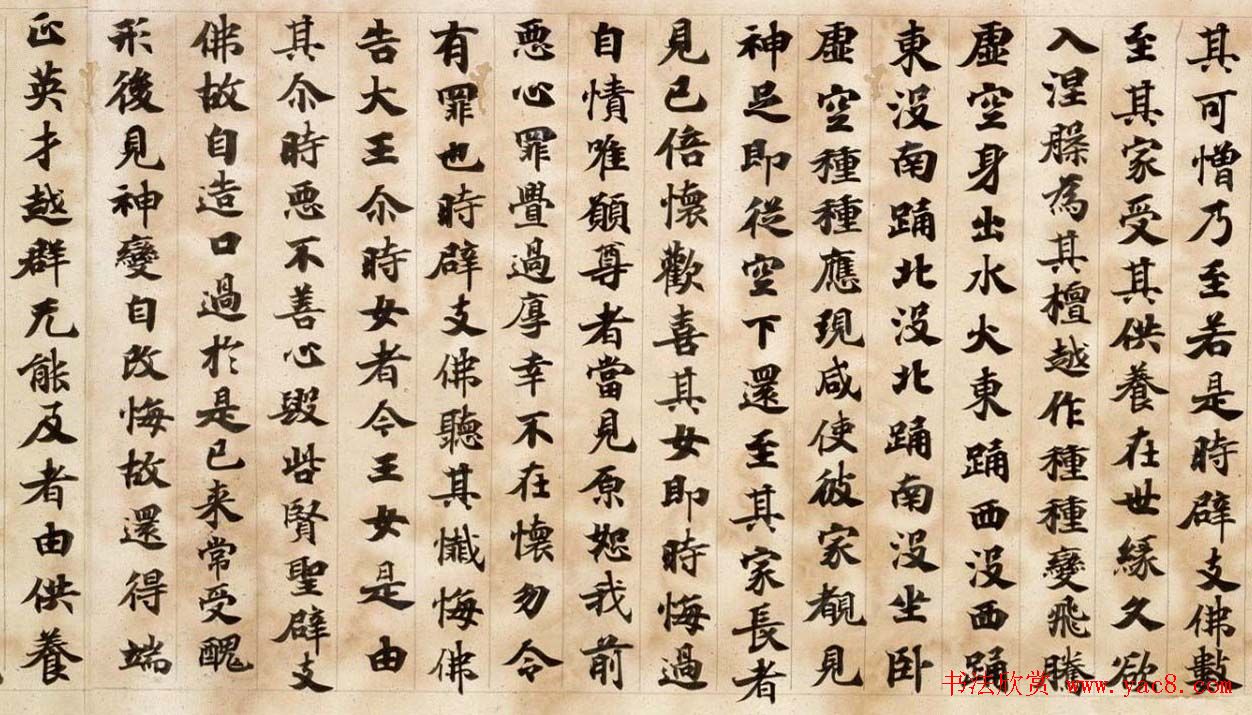 其可憎乃至若是時辟支佛數
至其家受其供養在世緣久欲
入涅槃為其檀越作種種變飛騰
虛空身出水火東踊西沒西踊
東沒南踊北沒北踊南沒坐卧
虛空種種應現咸使彼家覩見
神足即從空下還至其家長者
見已倍懷歡喜其女即時悔過
自憤唯願尊者當見原恕我前
惡心罪舋過厚幸不在懷勿令
有罪也時辟支佛聽其懺悔佛
告大王尒時女者今王女是由
其尒時惡不善心毀呰賢聖辟支
佛故自造口過於是已来常受醜
形後見神變自改悔故還得端
正英才越群无能及者由供養
书法欣赏 www.yac8.com